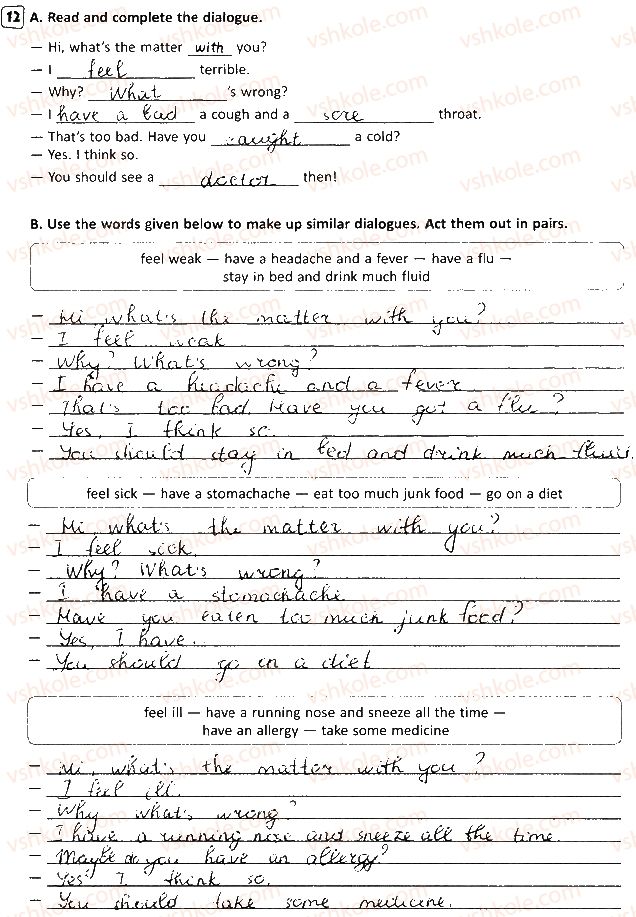 12 A. Read and complete the dialogue.
— Hi, what's the matter with you?
— I feel terrible.
— Why? What 's wrong?
— I have a bad a cough and a sore throat.
— That's too bad. Have you caught a cold?
— Yes. I think so.
— You should see a doctor then!
B. Use the words given below to make up similar dialogues. Act them out in pairs.
feel weak — have a headache and a fever — have a flu —
stay in bed and drink much fluid
— Hi what's the matter with you?
— I feel weak
— Why? What's wrong?
— I have a headache and a fever
— That's too bad. Have you got a flu?
— Yes, I think so.
— You should stay in bed and drink much fluid.
feel sick — have a stomachache — eat too much junk food — go on a diet
— Hi what's the matter with you?
— I feel sick.
— Why? What's wrong?
— I have a stomachache
— Have you eaten too much junk food?
— Yes, I have.
— You should go on a diet
feel ill — have a running nose and sneeze all the time —
have an allergy — take some medicine
— Hi, what's the matter with you?
— I feel ill.
— Why what's wrong?
— I have a running nose and sneeze all the time.
— Maybe do you have an allergy?
— Yes I think so.
— You should take some medicine.
vshkole.com